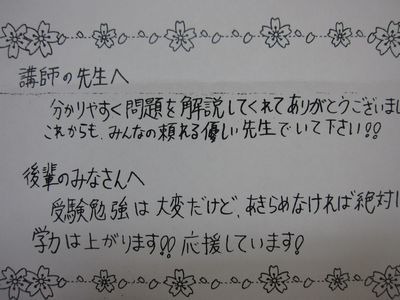 講師の先生へ
分かりやすく問題を解説してくれてありがとうございまし
これからも、みんなの頼れる優しい先生でいて下さい!!
後輩のみなさんへ
受験勉強は大変だけど、あきらめなければ絶対に
学力は上がります!!応援しています!